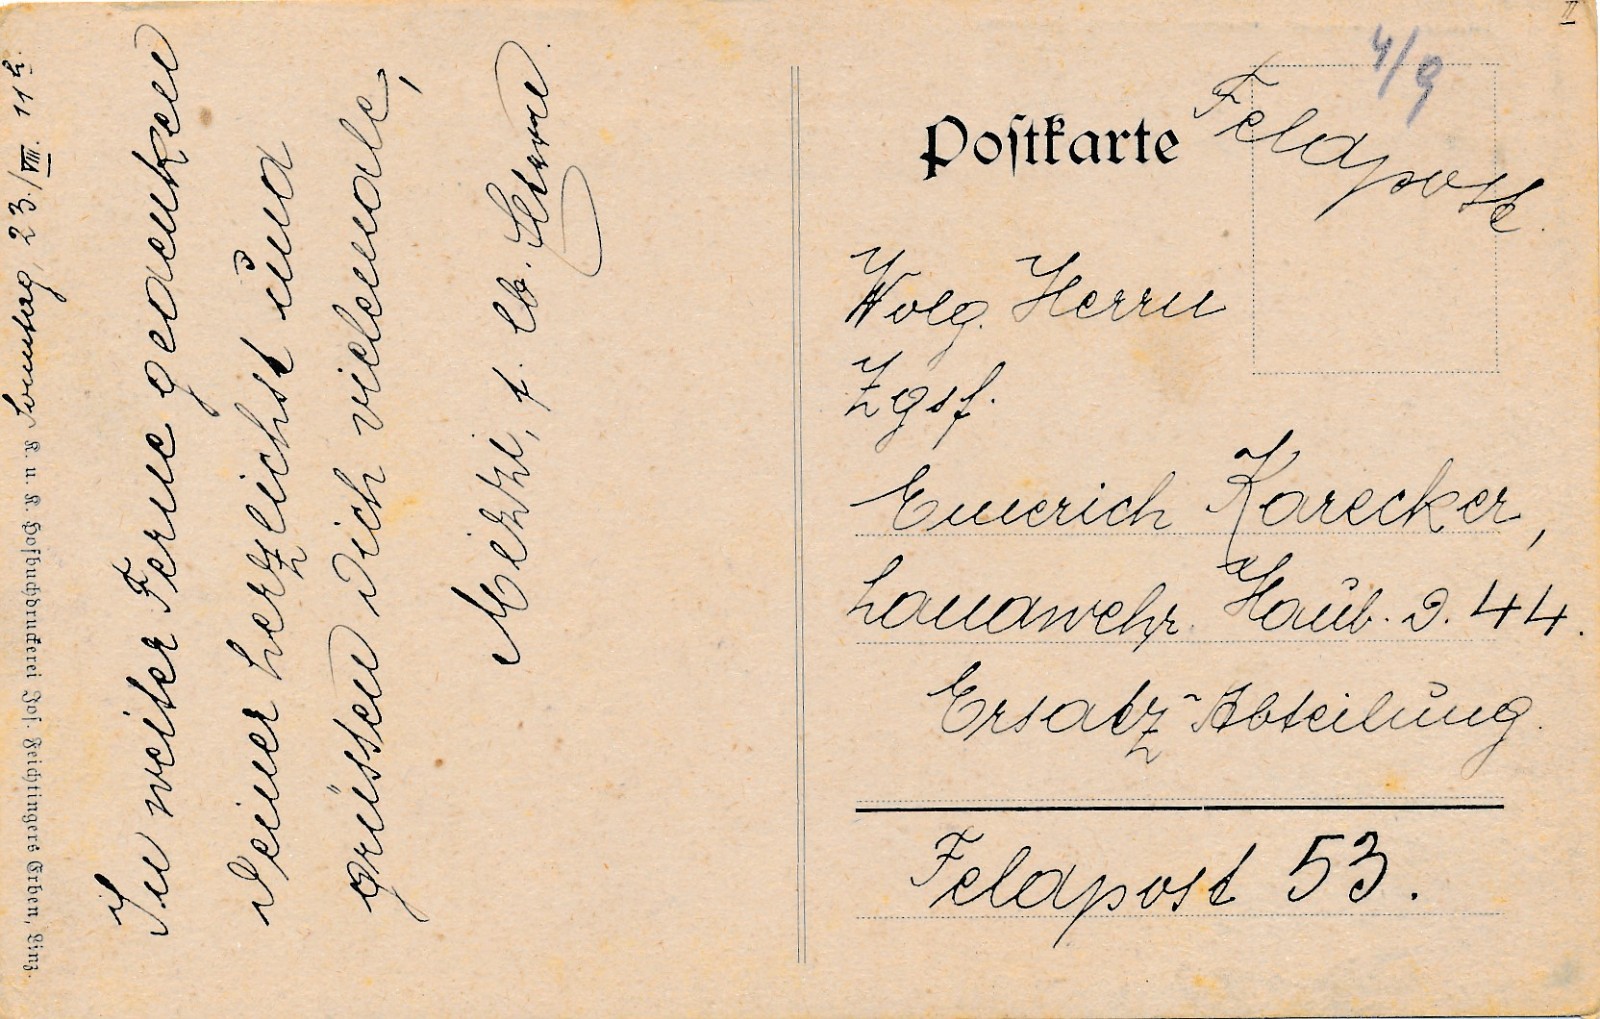 Sonntag, 23./VIII. 11 h.
In weiter Ferne gedenken
Deiner herzlichst und
grüssen Dich vielemale,
Meizzi, f. lb. Eltern.
K. u. K. Hofbuchdruckerei Jos. Feichtingers Erben, Linz.
II
4/9
Postkarte
Feldpost
Wolg. Herrn
Zgsf.
Emerich Karecker,
Landwehr Haub. D. 44.
Ersatz-Abteilung.
Feldpost 53.